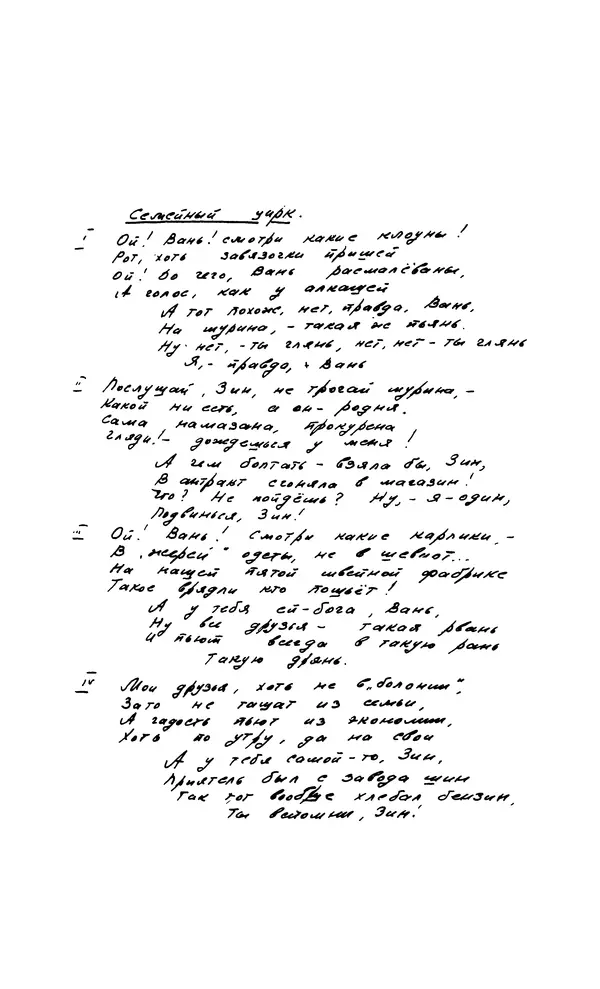 Семейный цирк.
I Ой! Вань! смотри какие клоуны!
Рот, хоть завязочки пришей
Ой! До чего, Вань расмалёваны,
А голос, как у алкашей
А тот похож, нет, правда, Вань,
На шурина, - такая же пьянь.
Ну нет, - ты глянь, нет, нет - ты глянь
Я, - правдо, Вань
II Послушай, Зин, не трогай шурина, -
Какой ни есть, а он - родня.
Сама намазана, прокурена
Гляди! - дождешься у меня!
А чем болтать - взяла бы, Зин,
В антракт сгоняла в магазин!
Что? Не пойдёшь? Ну, - я - один,
Подвинься, Зин!
III Ой! Вань! Смотри какие карлики, -
В "жерсей" одеты, не в шевиот...
На нашей пятой швейной фабрике
Такое врядли кто пошьёт!
А у тебя ей-бога, Вань,
Ну все друзья - такая рвань
И пьют всегда в такую рань
Такую дрянь.
IV Мои друзья, хоть не в "болонии",
Зато не тащат из семьи,
А гадость пьют из экономии,
Хоть по утру, да на свои
А у тебя самой-то, Зин,
Приятель был с завода шин
Так тот вообще хлебал бензин,
Ты вспомни, Зин!